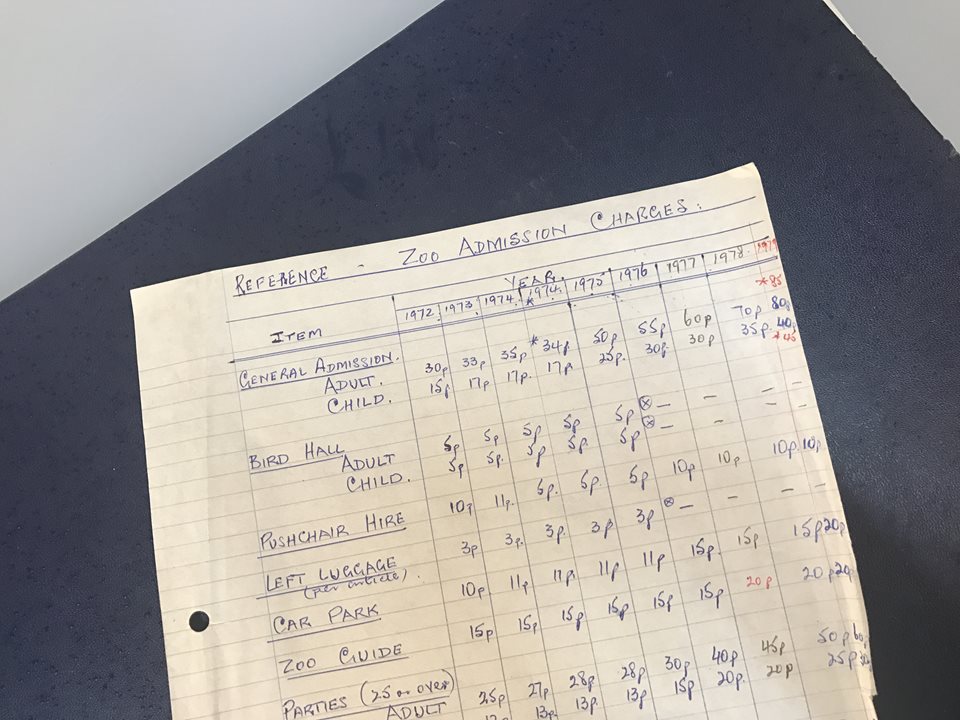 REFERENCE - ZOO ADMISSION CHARGES.
YEAR.
ITEM 1972. 1973. 1974. *1974. 1975 1976 1977 1978. 1979
*85
GENERAL ADMISSION.
ADULT. 30p 33p 35p *34p 50p 55p 60p 70p 80p
CHILD. 15p 17p 17p. 17p 25p. 30p 30p 35p. 40p
*45
BIRD HALL
ADULT 5p 5p 5p 5p 5p ⊗ — — — —
CHILD. 5p 5p. 5p 5p 5p ⊗ — — — —
PUSHCHAIR HIRE 10p 11p. 5p. 5p 5p 10p 10p 10p 10p
LEFT LUGGAGE 3p 3p. 3p 3p 3p ⊗ — — — —
(per article).
CAR PARK 10p 11p 11p 11p 11p 15p. 15p 15p 20p
ZOO GUIDE 15p 15p 15p 15p 15p 15p 20p 20p 20p
PARTIES (25 or over)
ADULT 25p 27p 28p 28p 30p 40p 45p 50p 60p
13p. 13p 13p 15p 20p. 20p 25p